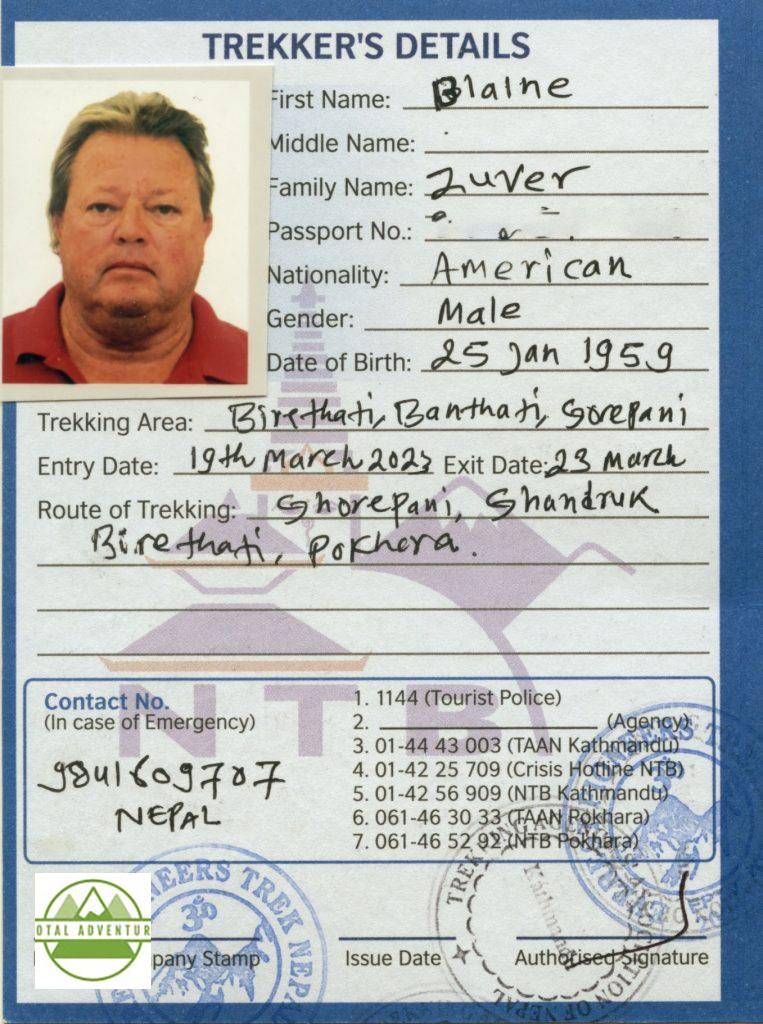 TREKKER'S DETAILS
First Name: Blaine
Middle Name:
Family Name: Zuver
Passport No.:
Nationality: American
Gender: Male
Date of Birth: 25 Jan 1959
Trekking Area: Birethati, Banthati, Gorepani
Entry Date: 19th March 2023 Exit Date: 23 March
Route of Trekking: Ghorepani, Ghandruk
Birethati, Pokhara.
NTB
Contact No.
(In case of Emergency)
9841609707
NEPAL
1. 1144 (Tourist Police)
2. (Agency)
3. 01-44 43 003 (TAAN Kathmandu)
4. 01-42 25 709 (Crisis Hotline NTB)
5. 01-42 56 909 (NTB Kathmandu)
6. 061-46 30 33 (TAAN Pokhara)
7. 061-46 52 92 (NTB Pokhara)
OTAL ADVENTUR
pany Stamp
Issue Date
Authorised Signature
EERS TREK NEPA
EERS TREK
TREKKING AG
Kathmandu
CIATION OF NEPAL